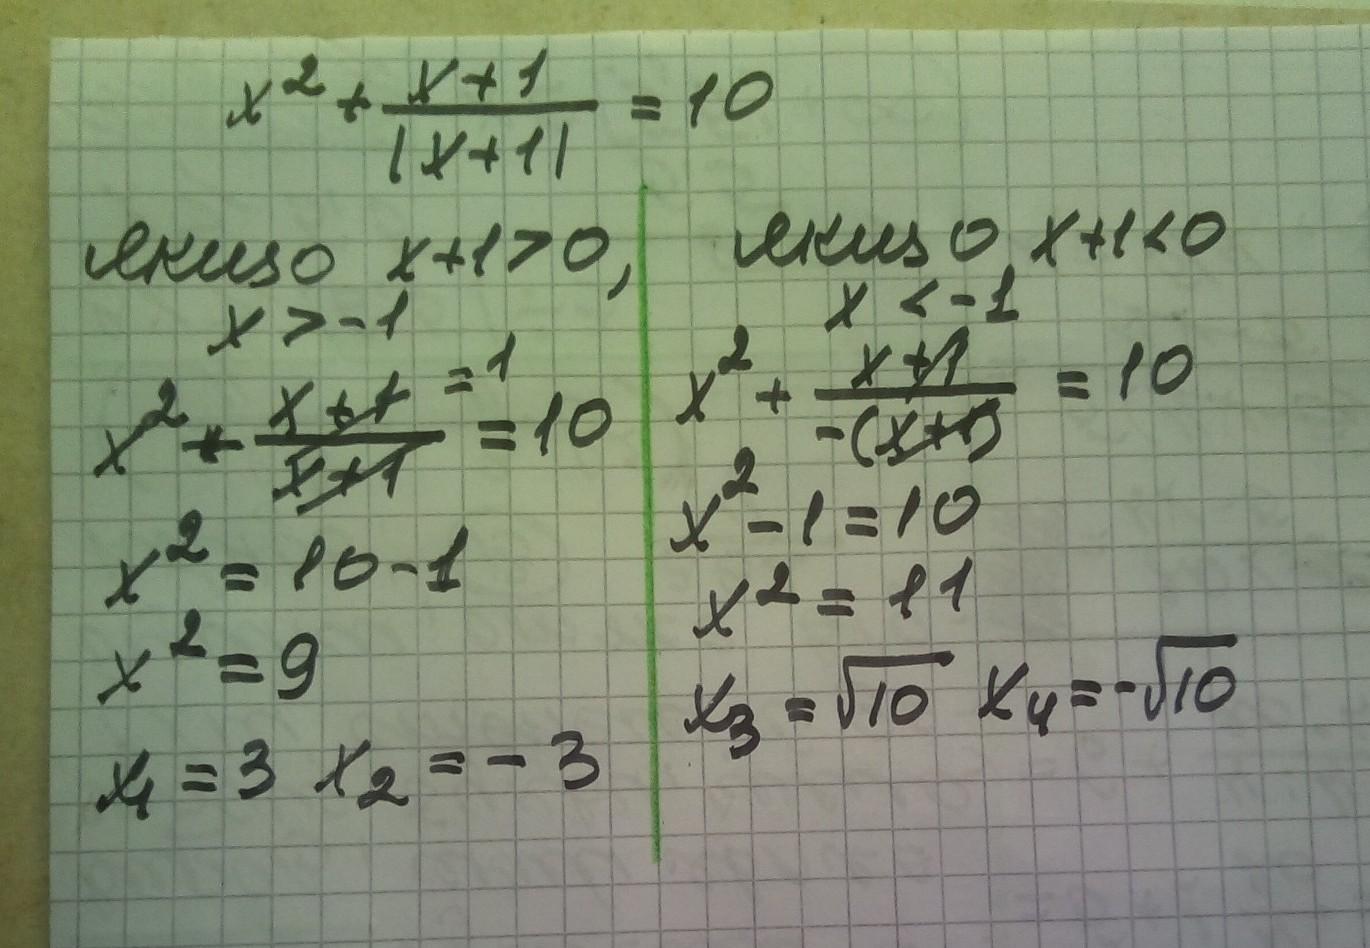 x² + (x+1)/|x+1| = 10
якщо x+1>0,
x > -1
x² + (x+1)/(x+1) = 10
=1
x² = 10-1
x² = 9
x₁ = 3 x₂ = -3
якщо x+1<0
x < -1
x² + (x+1)/(-(x+1)) = 10
x² - 1 = 10
x² = 11
x₃ = √10 x₄ = -√10